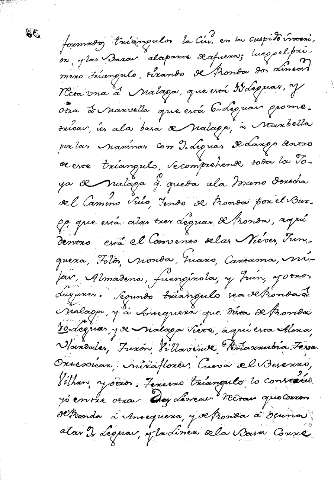 formados triangulos la Ciu.d en la cuspide
y las Bases a la parte de afuera; luego el pri-
mero triangulo, tirando de Ronda dos lineas
recta una à Malaga, que está Leguas, y
otra à Marvella que está 6 Leguas geome-
tricas, es a la basa de Malaga, à Marbella
por las Marinas con Leguas de Largo dentro
de este triangulo, se comprehende toda la Jo-
ya de Malaga q. queda a la mano derecha
del Camino Yendo de Ronda por el Bur-
go, que está a las tres Leguas de Ronda, aqui
dentro está el Convento de las Nieves, Jun-
quera, Tolox Monda, Guaro, Cartama, Mi-
jas, Almadena, Fuengirola, y Juin, y otros
Lugares. Segundo triangulo sea de Ronda à
Malaga, y à Antequera que dista de Ronda
Leguas, y de Malaga Siete, aqui esta Alora,
Hardales, Turon Villaverde, Peñarrubia, Teba
Ortexicar, Miraflores, Cueva de el Becerro,
y otros. Tercero triangulo lo
yò entre otras Dos Lineas Rectas que corren
de Ronda à Antequera, y de Ronda à Osuna
a las Leguas, y la Linea de la Basa Corre